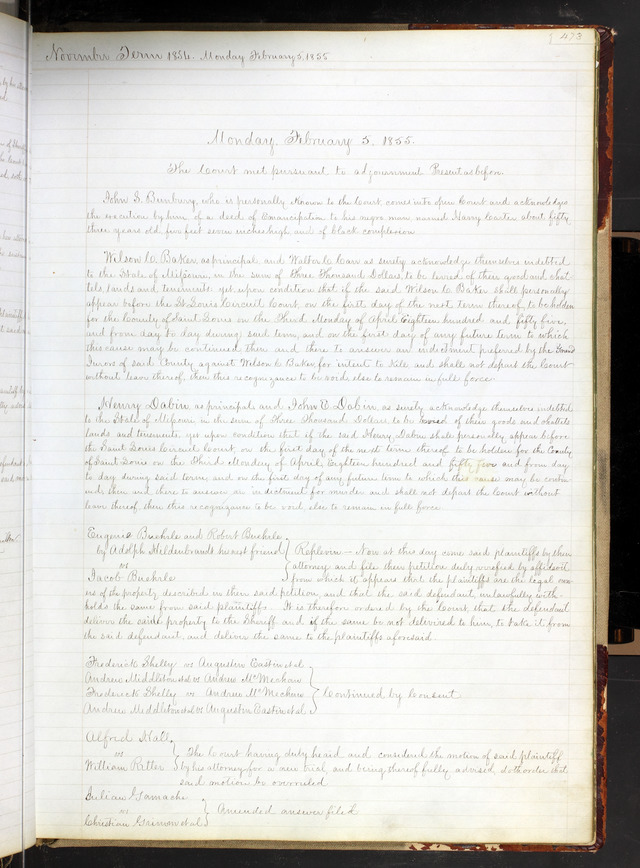 473
November Term 1854. Monday February 5, 1855
Monday, February 5, 1855.
The Court met pursuant to adjournment Present as before.
John S. Bunbury, who is personally known to the Court, comes into open Court and acknowledges
the execution by him of a deed of Emancipation to his negro man named Harry Carter about fifty
three years old, five feet seven inches high and of black complexion.
Wilson C. Baker as principal and Walter C. Carr as surety acknowledge themselves indebted
to the State of Missouri, in the sum of Three Thousand Dollars, to be levied of their good and chat
tels, lands and tenements, yet upon condition that if the said Wilson C. Baker shall personally
appear before the St Louis Circuit Court, on the first day of the next term thereof, to be holden
for the County of Saint Louis on the Third Monday of April Eighteen hundred and fifty five,
and from day to day during said term, and on the first day of any future term to which
this cause may be continued then and there to answer an indictment preferred by the Grand
Jurors of said County against Wilson C. Baker for intent to Kill and shall not depart the Court
without leave thereof, then this recognizance to be void, else to remain in full force.
Henry Dabin as principal and John E. Dabin as surety acknowledge themselves indebted
to the State of Missouri in the sum of Three Thousand Dollars to be levied of their goods and chattels
lands and tenements, yet upon condition that if the said Henry Dabin shall personally appear before
the Saint Louis Circuit Court on the first day of the next term thereof to be holden for the County
of Saint Louis on the Third Monday of April, Eighteen hundred and fifty five and from day
to day during said term, and on the first day of any future term to which this cause may be contin
ued, then and there to answer an indictment for murder and shall not depart the Court without
leave thereof, then this recognizance to be void, else to remain in full force.
Eugene Buehrle and Robert Buehrle
by Adolph Hildenbrandt his next friend Replevin — Now at this day come said plaintiffs by their
vs attorney and file their petition duly verified by affidavit
Jacob Buehrle from which it appears that the plaintiffs are the legal own
ers of the property described in their said petition, and that the said defendant unlawfully with-
holds the same from said plaintiffs. It is therefore ordered by the Court, that the defendant
deliver the same property to the Sheriff and if the same be not delivered to him, to take it from
the said defendant, and deliver the same to the plaintiffs aforesaid.
Frederick Shelly vs Augustin Eastin et al
Andrew Middleton et al vs Andrew McMechan
Frederick Shelly vs Andrew McMechan Continued by Consent
Andrew Middleton et al vs Augustin Eastin et al
Alfred Hall
vs The Court having duly heard and considered the motion of said plaintiff
William Ritter by his attorney for a new trial, and being thereof fully advised, doth order that
said motion be overruled.
Julian Gamache
vs Amended answer filed
Christian et al